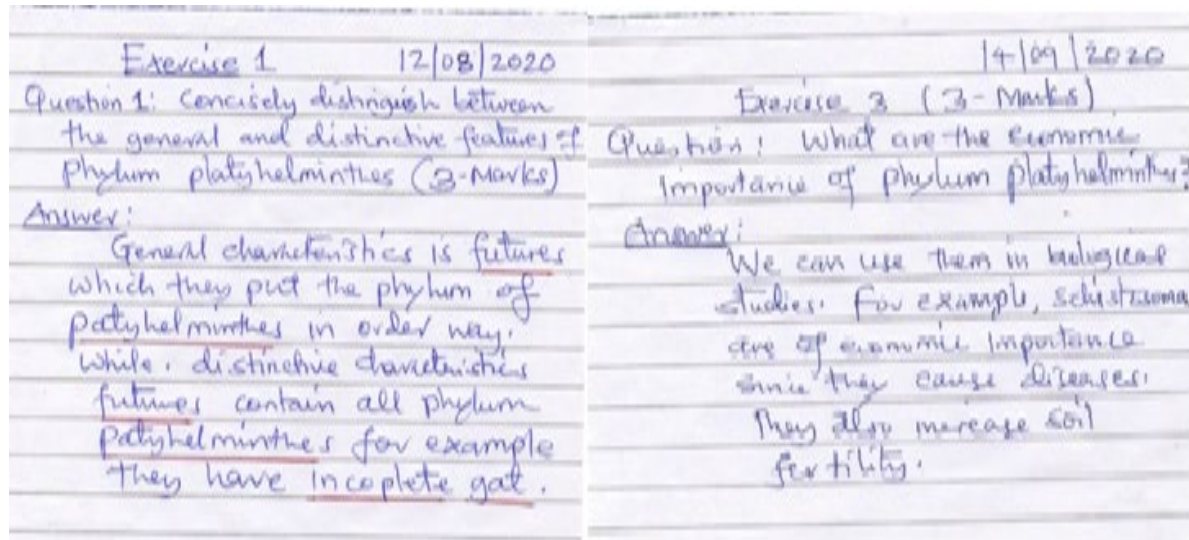 Exercise 1 12/08/2020
Question 1: Concisely distinguish between
the general and distinctive features of
phylum platyhelminthes (3-Marks)
Answer:
General characteristics is futures
which they put the phylum of
patyhelminthes in order way.
while. distinctive characteristics
futures contain all phylum
patyhelminthes for example
they have incoplete gat.
14/09/2020
Exercise 3 (3-Marks)
Question: What are the economic
importance of phylum platyhelminthes?
Answer:
We can use them in biological
studies. For example, schistosoma
are of economic importance
since they cause diseases.
They also increase soil
fertility.